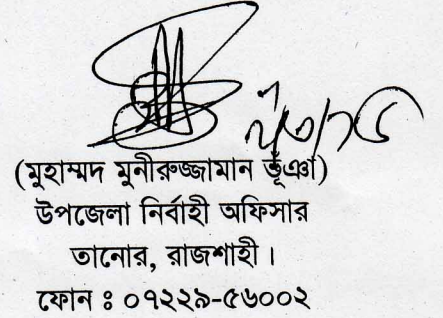 (মুহাম্মদ মুনীরুজ্জামান ভূঁঞা)
উপজেলা নির্বাহী অফিসার
তানোর, রাজশাহী।
ফোন ঃ ০৭২২৯-৫৬০০২